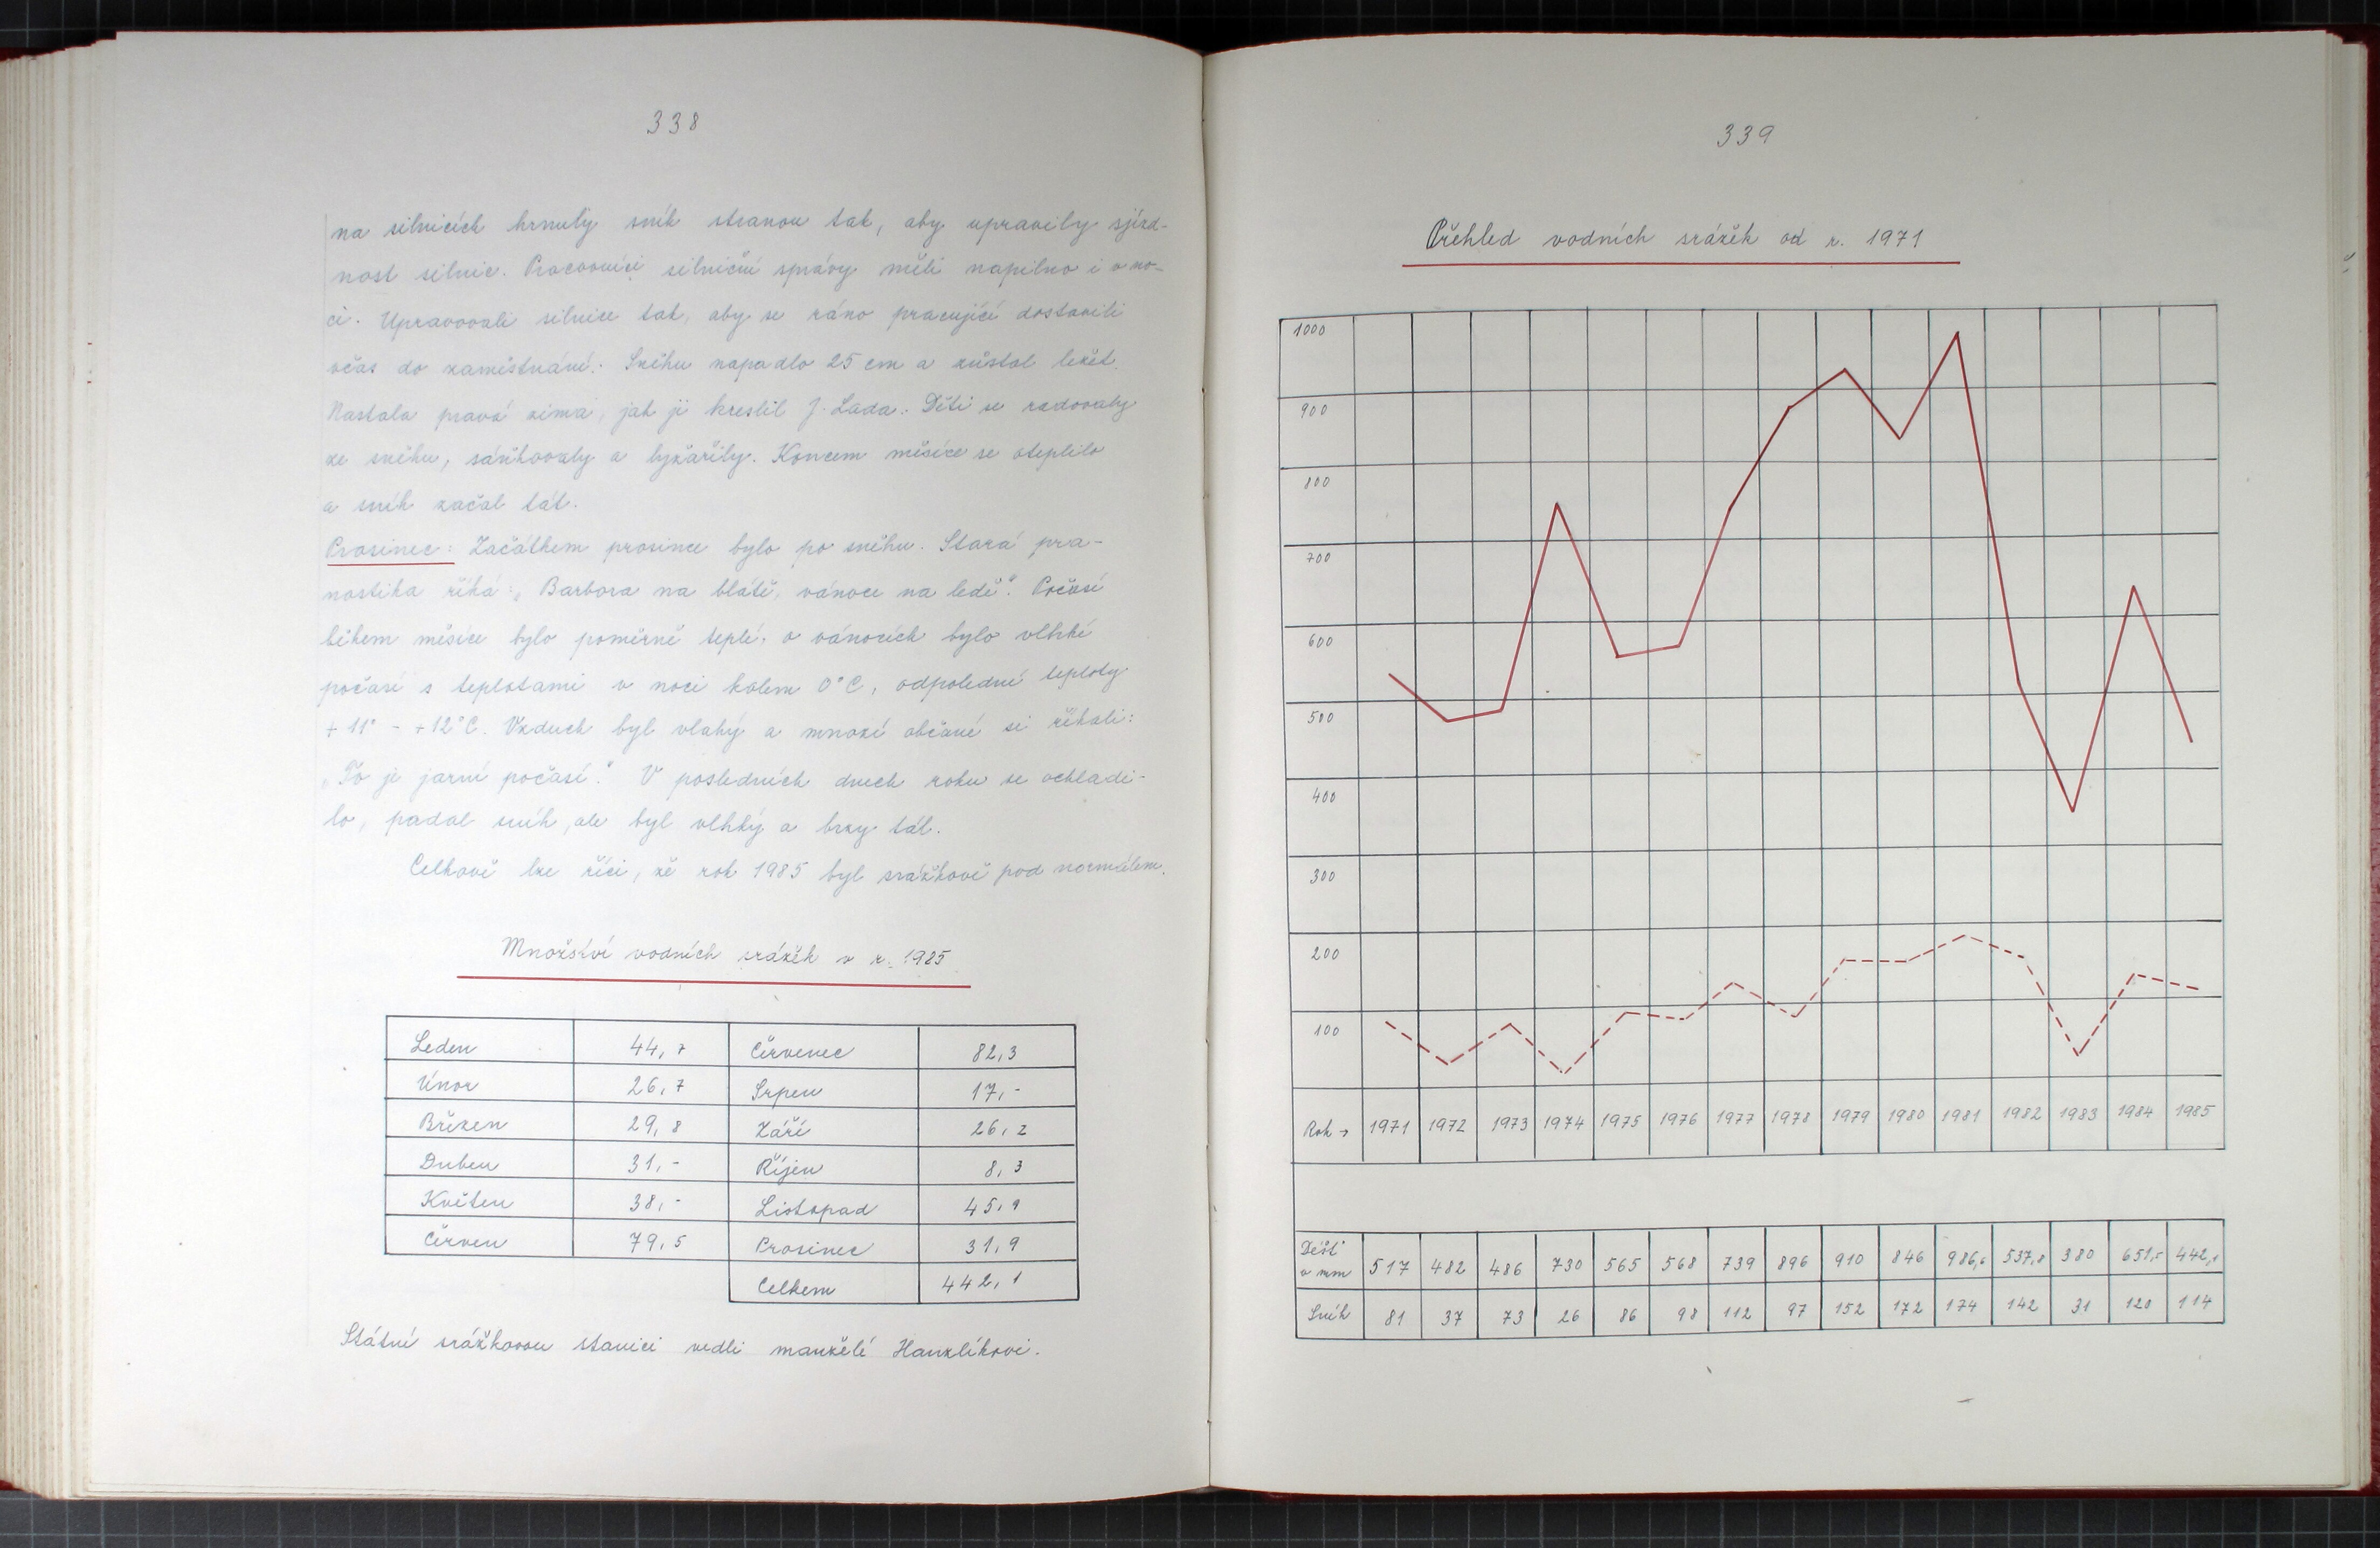 338
na silnicích hrnuly sníh stranou tak, aby upravily sjízd-
nost silnic. Pracovníci silniční správy měli napilno i v no-
ci. Upravovali silnice tak, aby se ráno pracující dostavili
včas do zaměstnání. Sněhu napadlo 25 cm a zůstal ležet.
Nastala pravá zima, jak ji kreslil J. Lada. Děti se radovaly
ze sněhu, sáňkovaly a lyžařily. Koncem měsíce se oteplilo
a sníh začal tát.
Prosinec: Začátkem prosince bylo po sněhu. Stará pra-
nostika říká: „Barbora na blátě, vánoce na ledě“. Počasí
během měsíce bylo poměrně teplé, o vánocích bylo vlhké
počasí s teplotami v noci kolem 0°C, odpolední teploty
+ 11° - +12°C. Vzduch byl vlahý a mnozí občané si říkali:
„To je jarní počasí.“ V posledních dnech roku se ochladi-
lo, padal sníh, ale byl vlhký a brzy tál.
Celkově lze říci, že rok 1985 byl srážkově pod normálem.
Množství vodních srážek v r. 1985
Leden 44,7 Červenec 82,3
Únor 26,7 Srpen 17,-
Březen 29,8 Září 26,2
Duben 31,- Říjen 8,3
Květen 38,- Listopad 45,9
Červen 79,5 Prosinec 31,9
Celkem 442,1
Státní srážkovou stanici vedli manželé Hanzlíkovi.
339
Přehled vodních srážek od r. 1971
1000
900
800
700
600
500
400
300
200
100
Rok → 1971 1972 1973 1974 1975 1976 1977 1978 1979 1980 1981 1982 1983 1984 1985
Déšť
v mm 517 482 486 730 565 568 739 896 910 846 986,6 537,8 380 651,5 442,1
Sníh 81 37 73 26 86 98 112 97 152 172 174 142 31 120 114